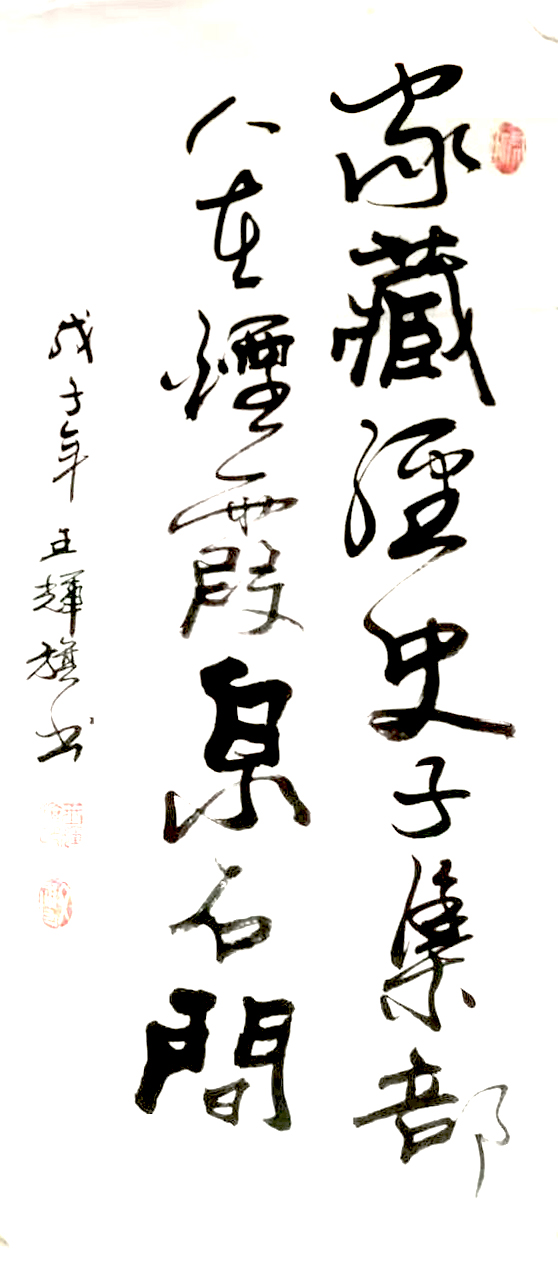 家藏經史子集部
人在煙霞泉石間
戊子年王輝旗书